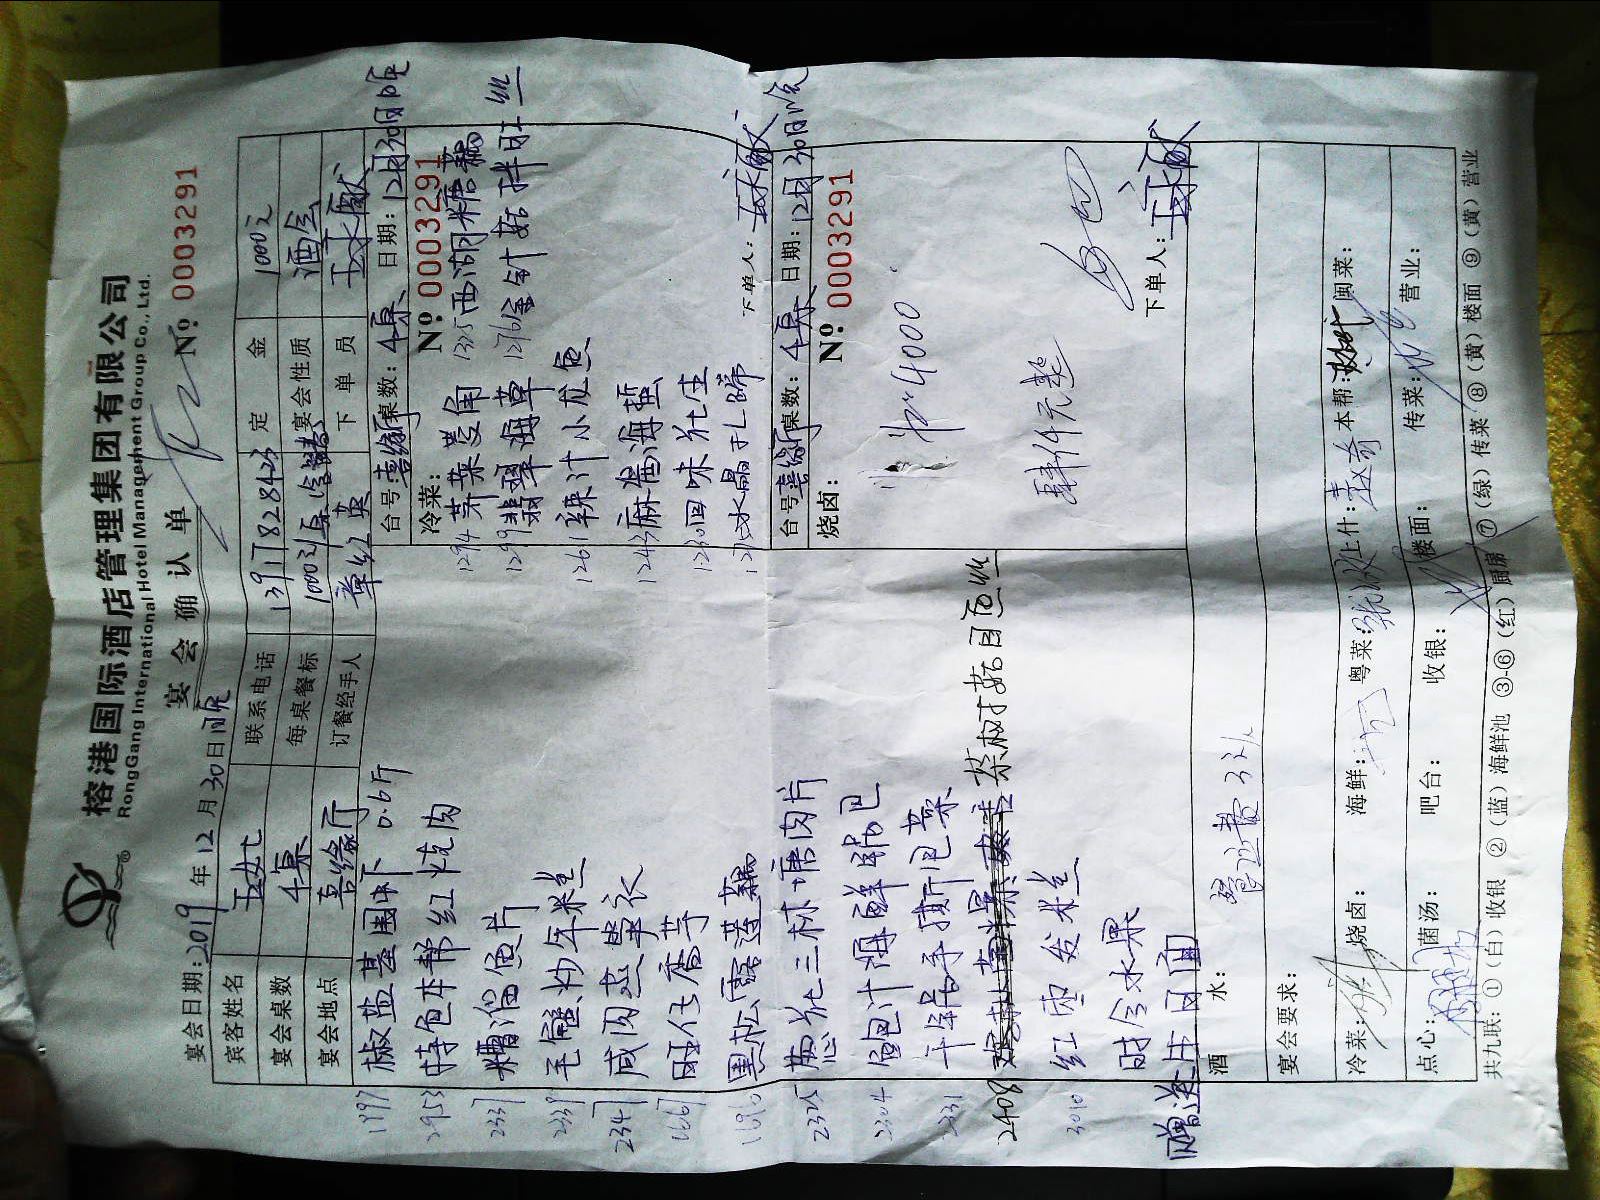 榕港国际酒店管理集团有限公司
RongGang International Hotel Management Group Co., Ltd.
宴会确认单
宴会日期:2019年12月30日晚 Nº 0003291
宾客姓名 联系电话 13917828423 定金 1000元
宴会桌数 4桌 每桌餐标 1000元/桌 宴会性质 酒会
宴会地点 喜缘厅 订餐经手人 章红英 下单员
1997 椒盐基围虾 0.6斤
2953 特色本帮红烧肉
2337 糟溜鱼片
2339 毛蟹炒年糕
2347 咸肉蒸百叶
1667 旺仔香芋
1690 黑松露莲藕
2325 葱花三林塘肉片
2304 鲍汁海鲜锅巴
2331 手撕包菜
2408 茶树菇目鱼丝
3010 红枣
时令水果
赠送生日面
台号:喜缘厅 桌数:4桌 日期:12月30日晚
冷菜: Nº 0003291
1294 荠菜菱角 1325 西湖糖藕
1299 翡翠海草 1276 金针菇拌旺丝
1261 辣汁小龙鱼
1243 麻酱海蜇
1230 回味花生
水晶
下单人:
台号:喜缘厅 桌数:4桌 日期:12月30日晚
烧卤: Nº 0003291
4000.
肆仟元整
下单人:
酒水:
宴会要求:
冷菜: 烧卤: 海鲜: 粤菜: 上什: 本帮: 闽菜:
点心: 菌汤: 吧台: 收银: 楼面: 传菜: 营业:
共九联:①(白)收银 ②(蓝)海鲜池 ③-⑥(红)厨房 ⑦(绿)传菜 ⑧(黄)楼面 ⑨(黄)营业